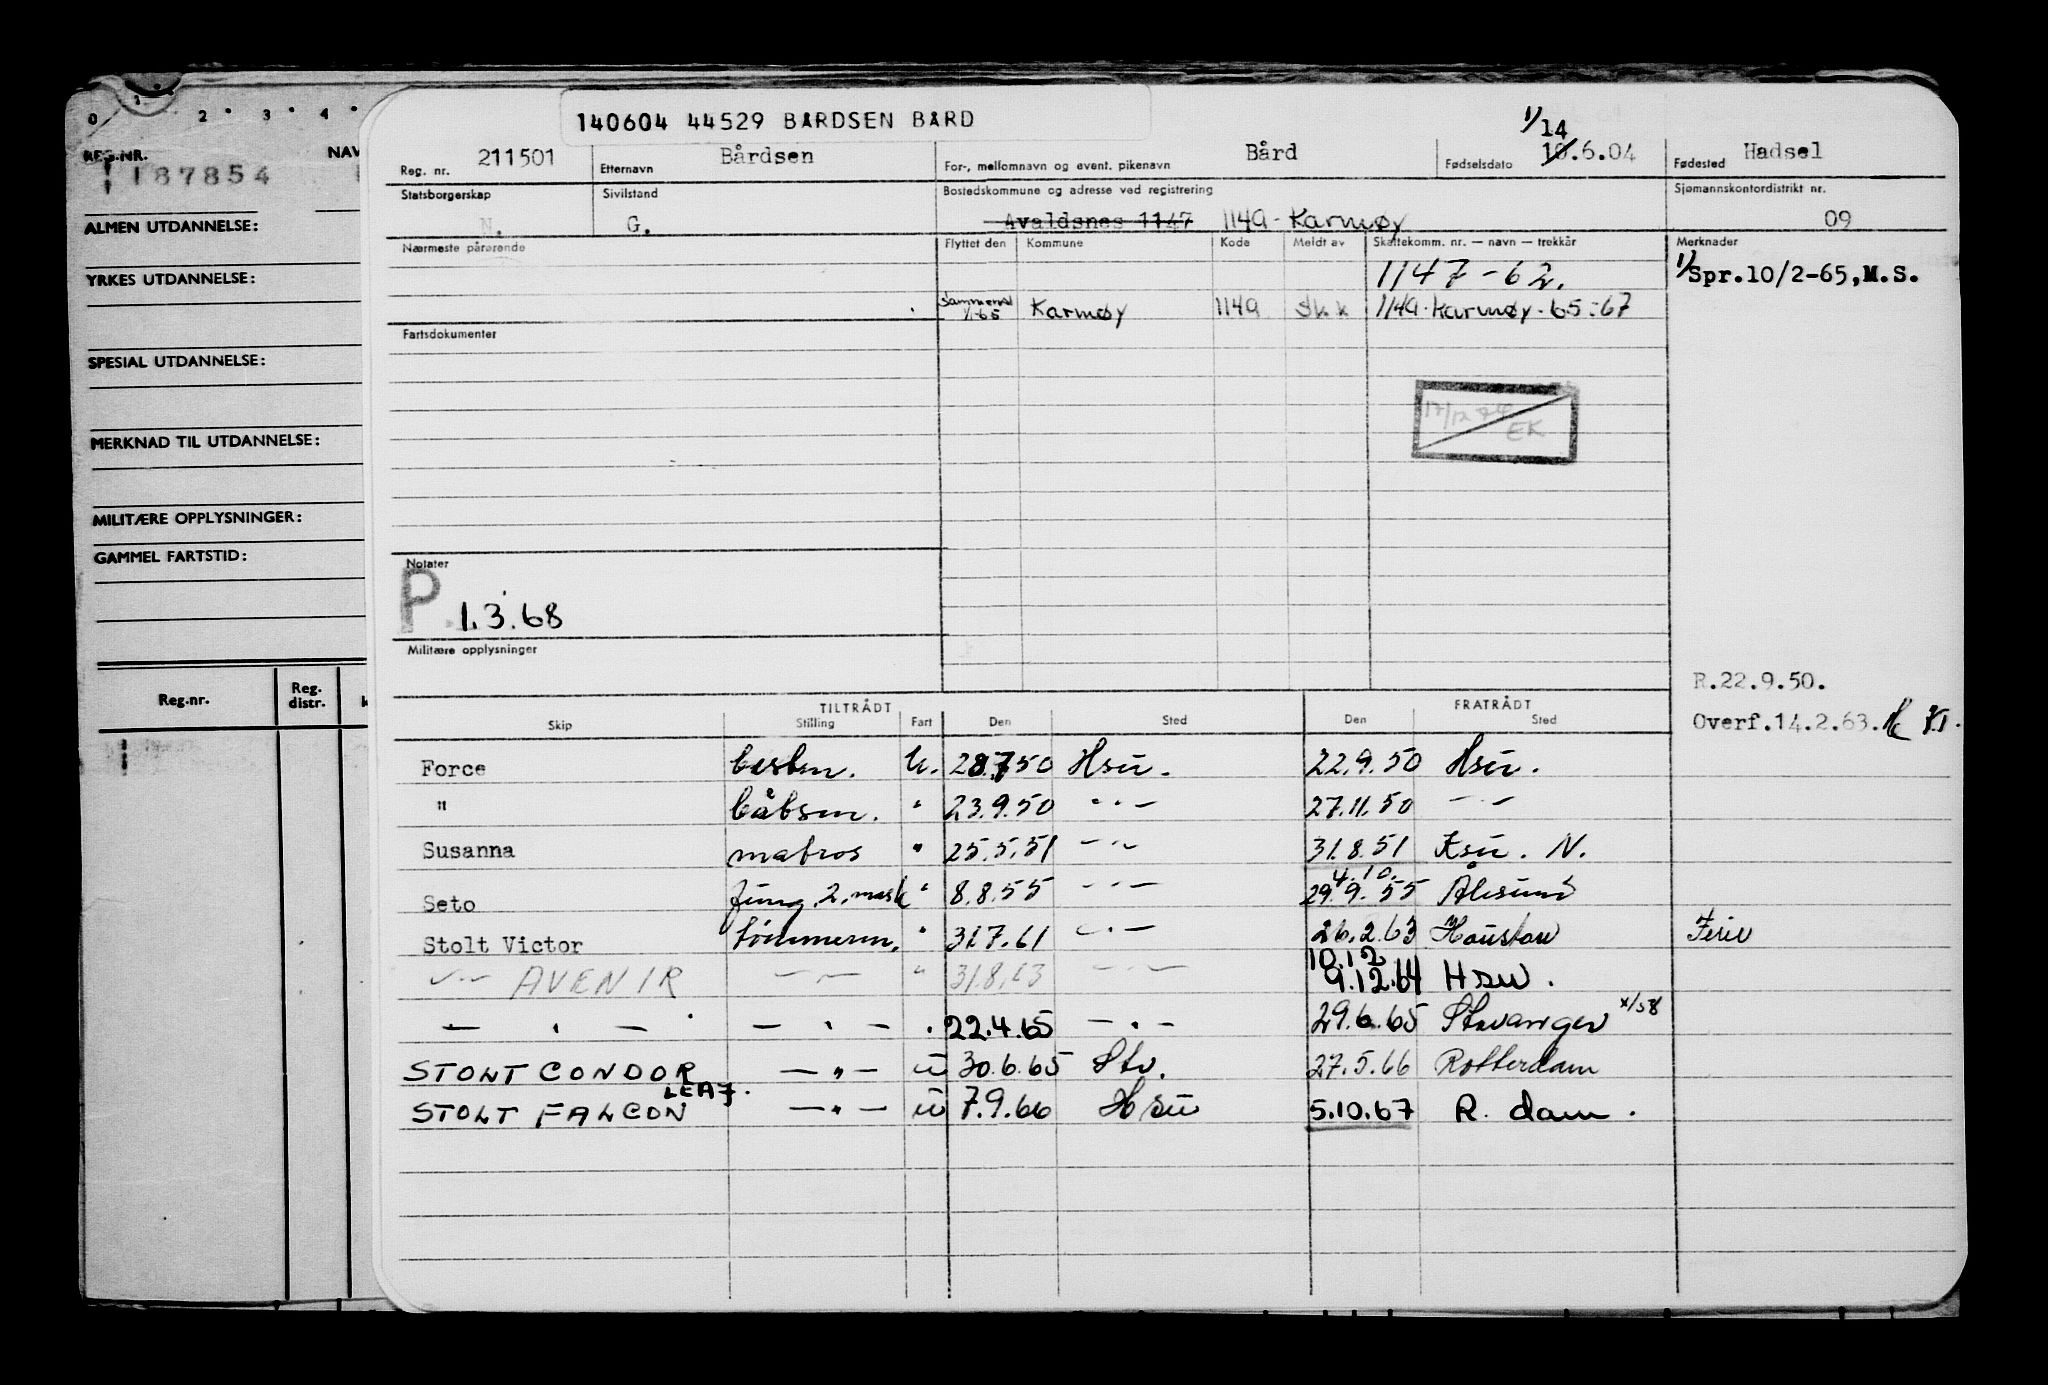 0 1 2 3 4
REG.NR. NAV
187854
ALMEN UTDANNELSE:
YRKES UTDANNELSE:
SPESIAL UTDANNELSE:
MERKNAD TIL UTDANNELSE:
MILITÆRE OPPLYSNINGER:
GAMMEL FARTSTID:
Reg.nr. Reg. distr.
140604 44529 BÅRDSEN BÅRD
Reg. nr. 211501 Etternavn Bårdsen For-, mellomnavn og event. pikenavn Bård Fødselsdato 1/ 14 10.6.04 Fødested Hadsel
Statsborgerskap N. Sivilstand G. Bostedskommune og adresse ved registrering Avaldsnes 1147 1149 - Karmøy Sjømannskontordistrikt nr. 09
Nærmeste pårørende Flyttet den Kommune Kode Meldt av Skattekomm. nr. — navn — trekkår Merknader
1147 - 62. 1/Spr.10/2-65,M.S.
Sammensl 1/1-65 Karmøy 1149 Skk 1149 - Karmøy - 65 - 67
Fartsdokumenter
17/12 74 EK
Notater
P. 1.3.68
Militære opplysninger
R.22.9.50.
Overf.14.2.63.
TILTRÅDT FRATRÅDT
Skip Stilling Fart Den Sted Den Sted
Force U. 28.7.50 Hsu. 22.9.50 Hsu.
" båtsm. " 23.9.50 — " — 27.11.50 — " —
Susanna matros " 25.5.51 — " — 31.8.51 Ksu. N.
4.10.
Seto Jung. 2. mask " 8.8.55 — " — 29.9.55 Ålesund
Stolt Victor tömmerm. " 31.7.61 — " — 26.2.63 Houston Ferie
10.12
— " — AVENIR — " — " 31.8.63 — " — 9.12.64 Hsu.
— " — — " — " 22.4.65 — " — 29.6.65 Stavanger x/58
STOLT CONDOR — " — u 30.6.65 Stv. 27.5.66 Rotterdam
LEA7.
STOLT FALCON — " — u 7.9.66 Hsu 5.10.67 R. dam.